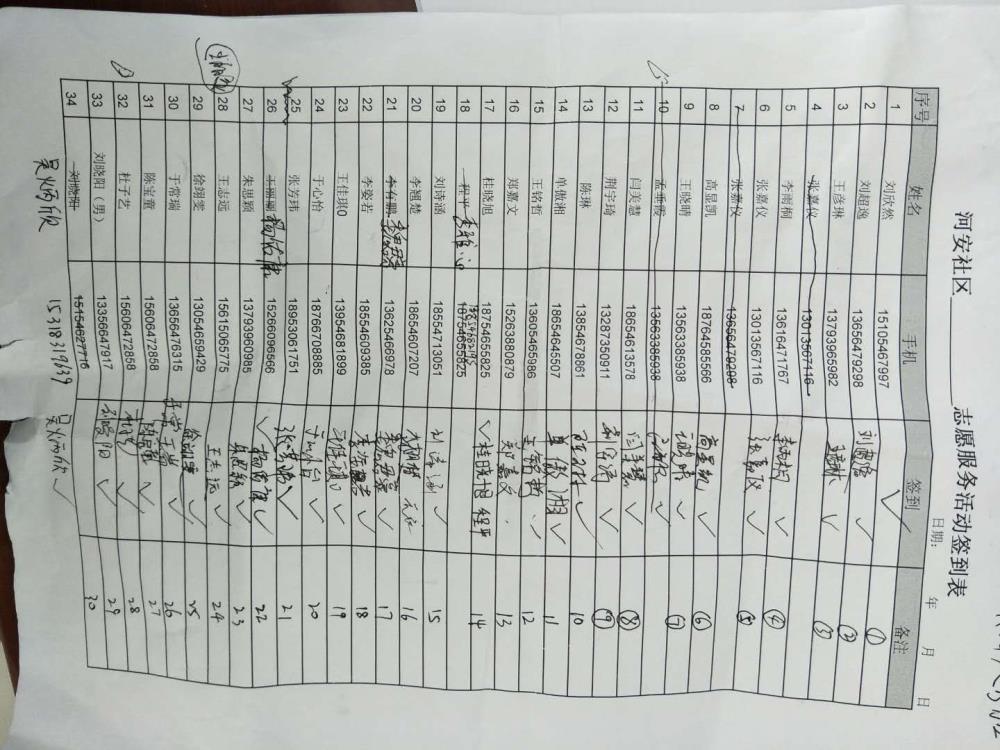 河安社区 志愿服务活动签到表
日期: 年 月 日
序号 姓名 手机 签到 备注
1 刘欣然 15105467997 ✓ ①
2 刘超逸 13656479298 ②
3 王彦琳 13793965982 王彦琳 ✓ ③
4 张嘉仪 13013567116
5 李雨桐 13616471767 李雨桐 ✓ ④
6 张嘉仪 13013567116 张嘉仪 ✓ ⑤
7 张嘉仪 13656479298
8 高显凯 18764585566 高显凯 ✓ ⑥
9 王晓晴 13563385938 ✓ ⑦
10 孟垂霞 13563385938
11 闫美慧 18654613578 闫美慧 ✓ ⑧
12 荆宇琦 13287350911 ✓ ⑨
13 陈琳 13854678861 ✓ 10
14 单傲湘 18654645507 单傲湘 ✓ 11
15 王铭哲 13605465986 王铭哲 ✓ 12
16 郑嘉文 15263880879 郑嘉文 13
17 桂晓旭 18754655825 ✓ 桂晓旭 程平 14
18 程平 18754655825
19 刘诗涵 18554713051 刘诗涵 ✓ 15
20 李翘楚 18654607207 16
21 李有鹏 13625466978 ✓ 17
22 李姿若 18554609385 ✓ 18
23 王佳琪0 13954681899 ✓ 19
24 于心怡 18766708885 于心怡 ✓ 20
25 张芳玮 18953061751 21
26 王丽丽 杨怡康 15266096566 ✓ ✓ 22
27 朱思颖 13793960985 朱思颖 ✓ 23
28 王志远 15615065775 王志远 24
29 徐翊雯 13054659429 徐翊雯 ✓ 25
30 于常瑞 13656476315 ✓ 26
31 陈宝童 15606472858 陈宝童 ✓ 27
32 杜子艺 15606472858 ✓ 28
33 刘晓阳（男） 13356647917 刘晓阳 ✓ 29
34 刘晓阳 15154627776 30
吴炳欣 15318319639 吴炳欣 ✓